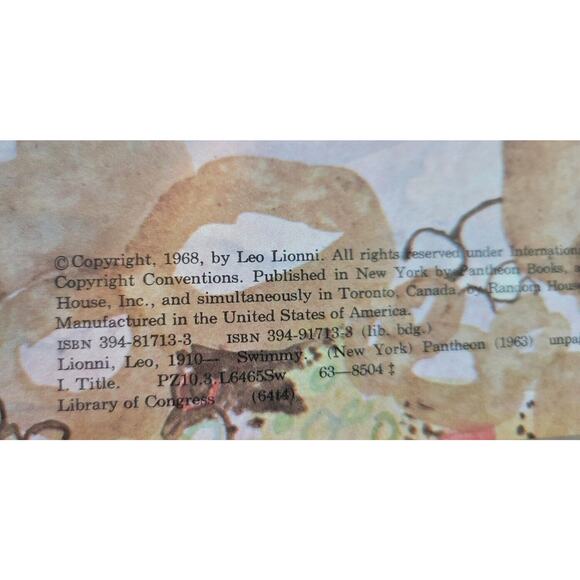 © Copyright, 1968, by Leo Lionni. All rights reserved under Internation
Copyright Conventions. Published in New York by Pantheon Books,
House, Inc., and simultaneously in Toronto, Canada, by Random Hous
Manufactured in the United States of America.
ISBN 394-81713-3 ISBN 394-91713-8 (lib. bdg.)
Lionni, Leo, 1910— Swimmy. (New York) Pantheon (1963) unpa
I. Title. PZ10.3.L6465Sw 63—8504 ‡
Library of Congress (64f4)